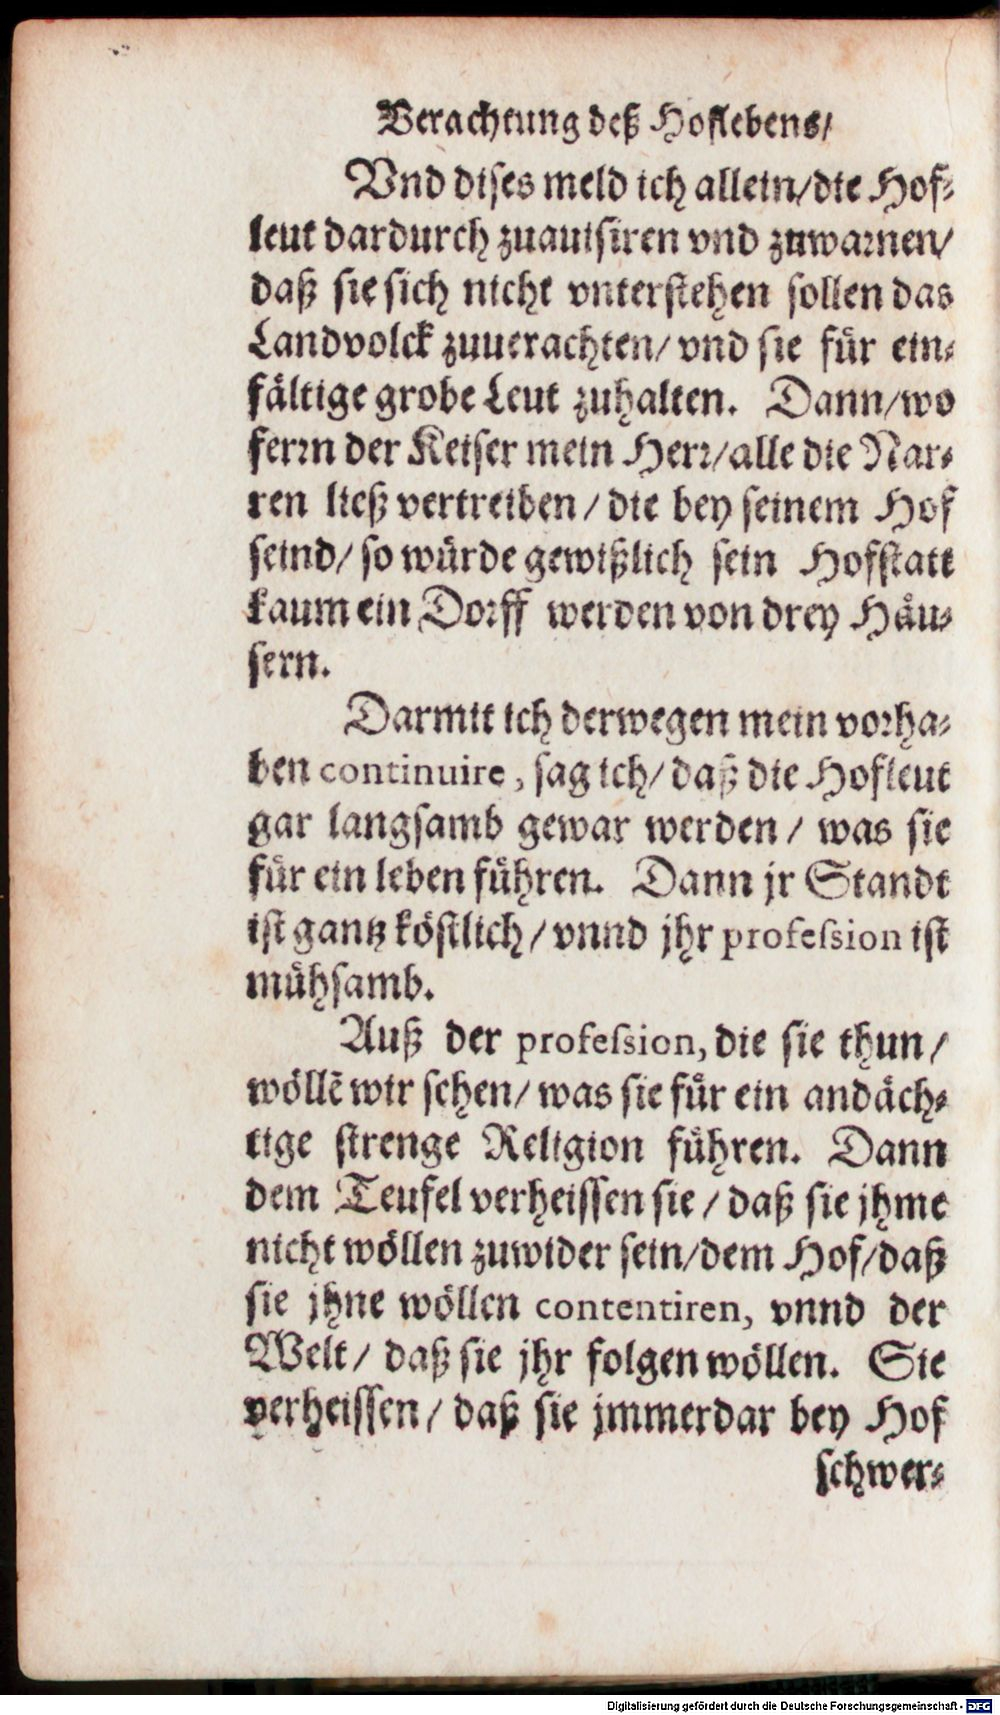 Verachtung deß Hoflebens/
Vnd dises meld ich allein/die Hof-
leut dardurch zuauisiren vnd zuwarnen/
daß sie sich nicht vnterstehen sollen das
Landvolck zuuerachten/ vnd sie für ein-
fältige grobe Leut zuhalten. Dann/wo
ferrn der Keiser mein Herr/alle die Nar-
ren ließ vertreiben / die bey seinem Hof
seind/ so würde gewißlich sein Hofstatt
kaum ein Dorff werden von drey Häu-
sern.
Darmit ich derwegen mein vorha-
ben continuire, sag ich/ daß die Hofleut
gar langsamb gewar werden / was sie
für ein leben führen. Dann jr Standt
ist gantz köstlich / vnnd jhr profeſsion ist
mühsamb.
Auß der profeſsion, die sie thun /
wöllē wir sehen/ was sie für ein andäch-
tige strenge Religion führen. Dann
dem Teufel verheissen sie / daß sie jhme
nicht wöllen zuwider sein/dem Hof/daß
sie jhne wöllen contentiren, vnnd der
Welt / daß sie jhr folgen wöllen. Sie
verheissen / daß sie jmmerdar bey Hof
schwer-
Digitalisierung gefördert durch die Deutsche Forschungsgemeinschaft - DFG